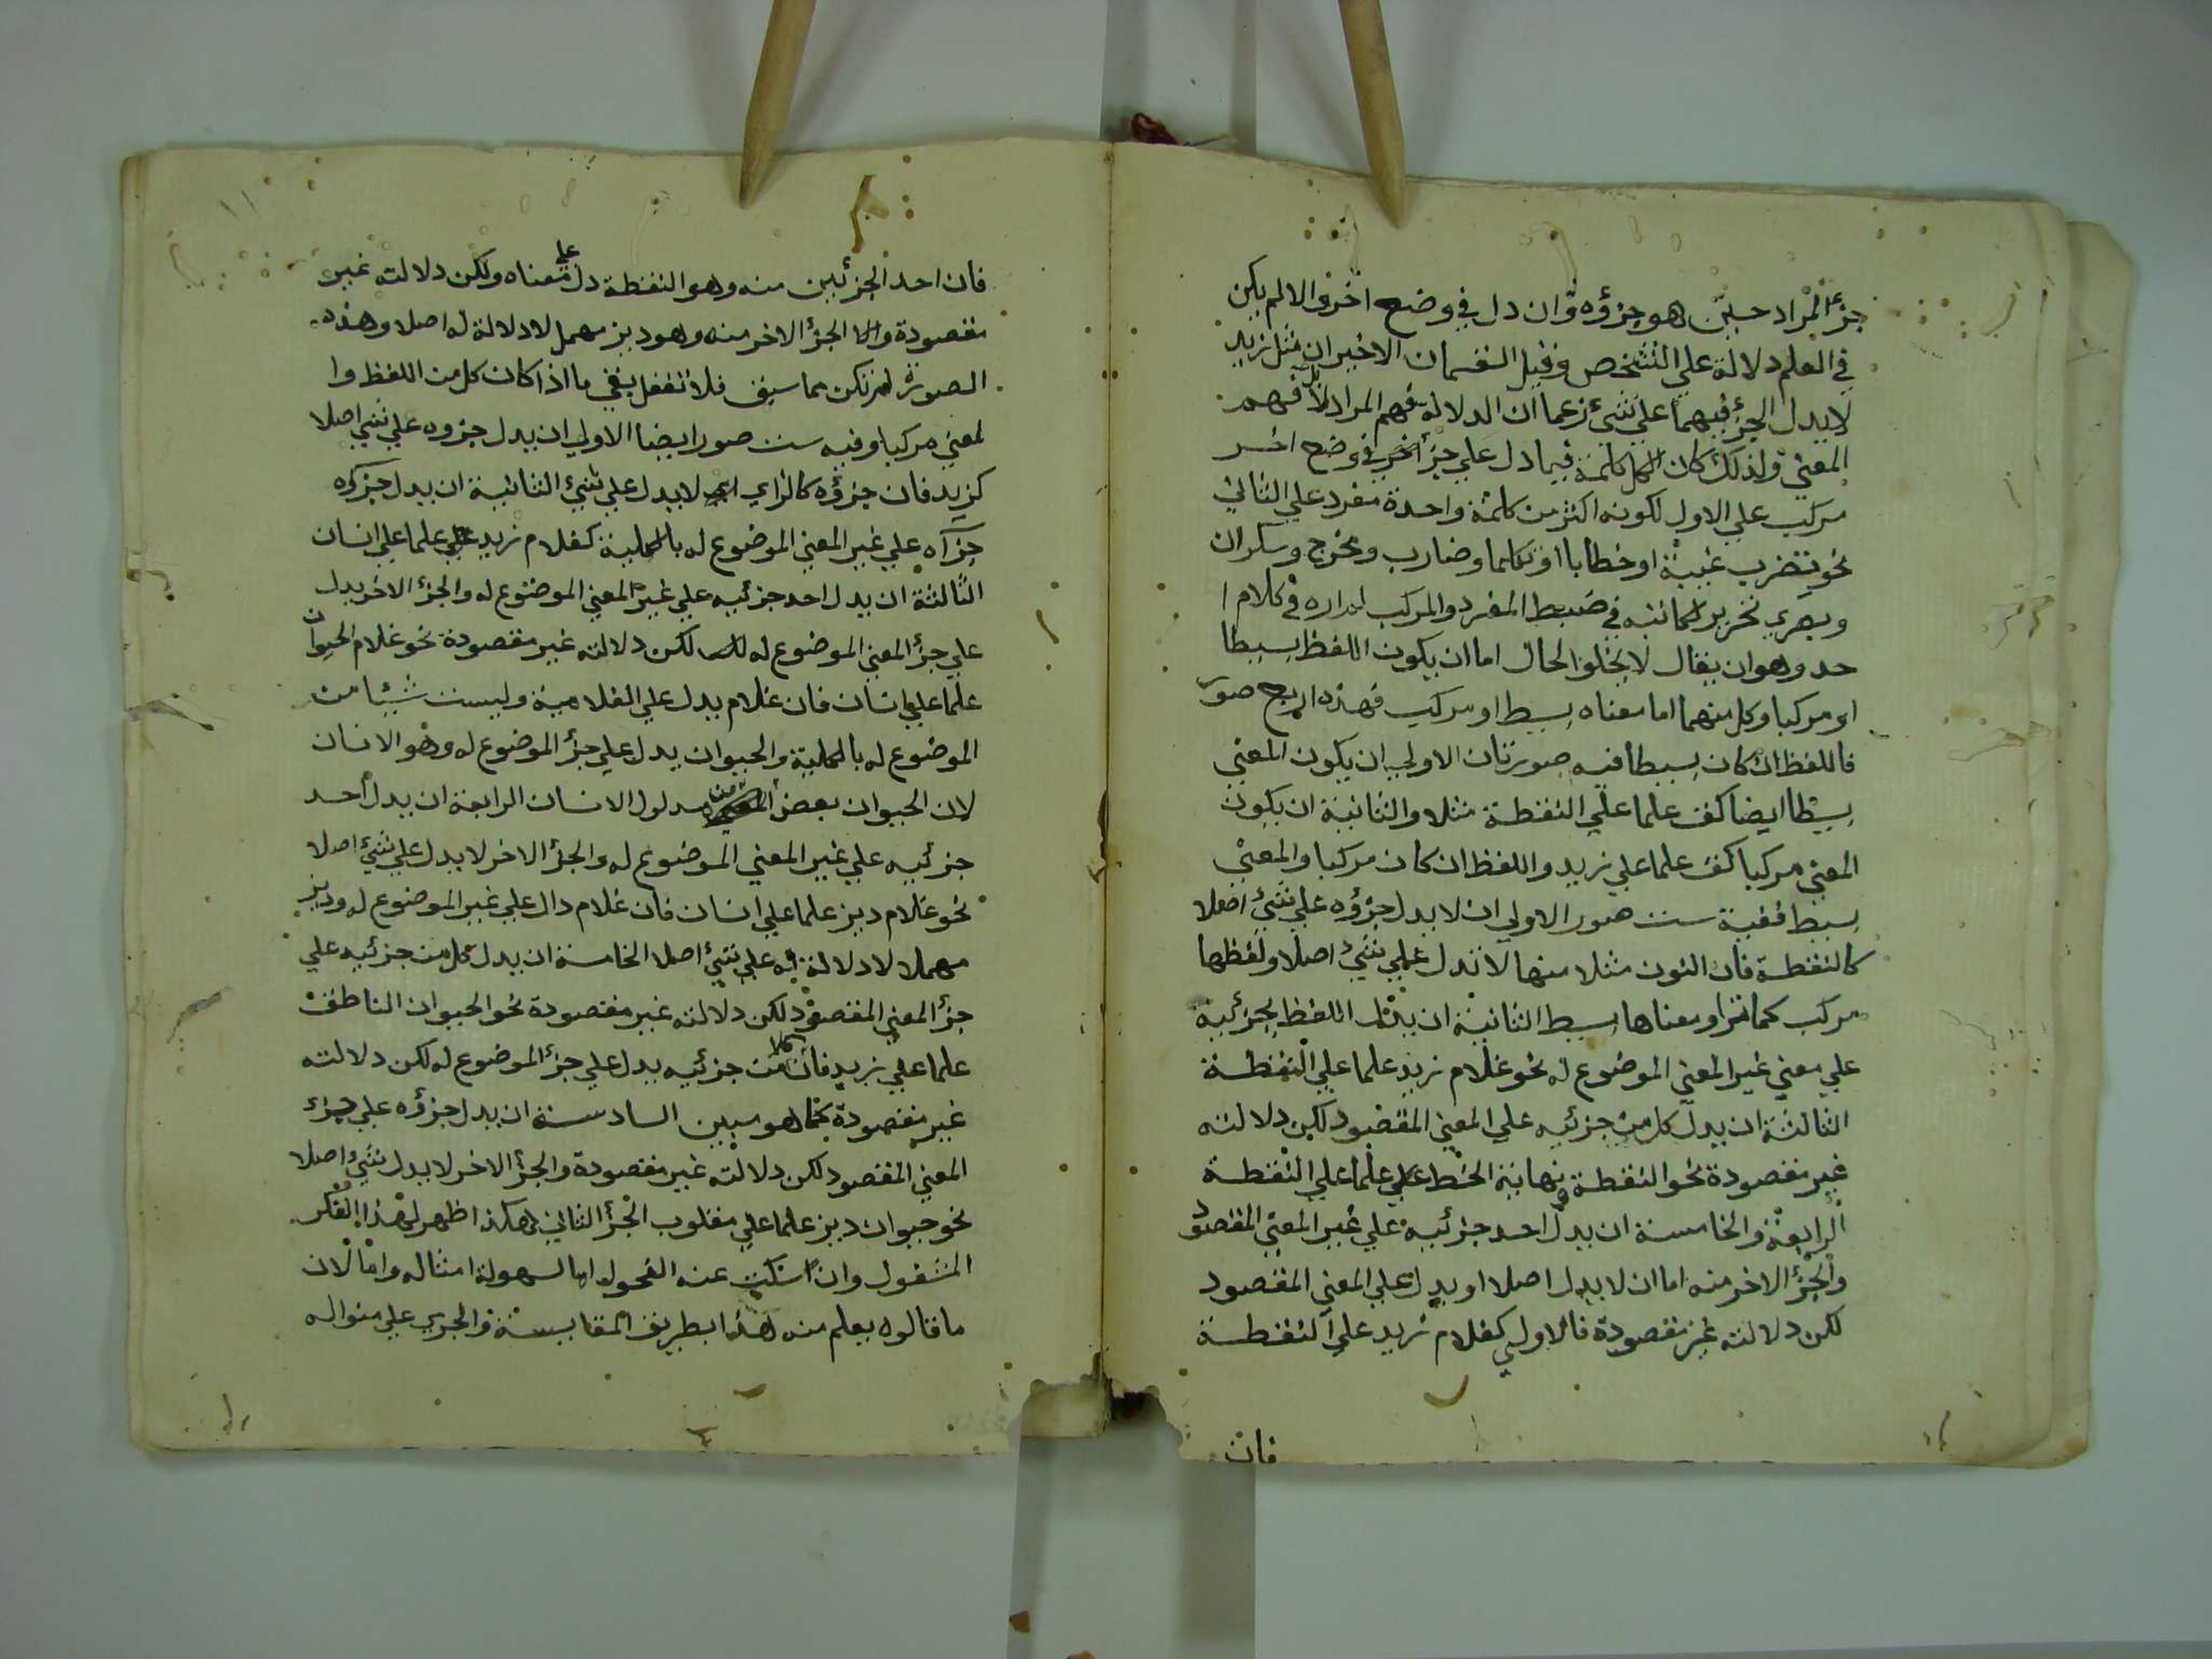 جزأ المراد حين هو جزؤه وان دل في وضع اخر والا لم يكن
في العلم دلالة علي التشخص وقيل القسمان الاخيران مثل زيد
لا يدل الجزء فيهما علي شيء زعما ان الدلالة فهم المراد لا فهم
المعني ولذلك كان الكل كلمة فيما دل علي جزء اخر في وضع اخر
مركب علي الاول لكونه اكثر من كلمة واحدة مفرد علي الثاني
نحو يضرب غيبة او خطابا او تكلما وضارب ومخرج وسكران
وبصري في ضبط المفرد والمركب لم اره في كلام ا
حد وهو ان يقال لا يخلو الحال اما ان يكون اللفظ بسيطا
او مركبا وكل منهما اما معناه بسيط او مركب فهذه اربع صور
فاللفظ ان كان بسيطا فيه صورتان الاولي ان يكون المعني
بسيطا ايضا كق علما علي النقطة مثلا والثانية ان يكون
المعني مركبا كق علما علي زيد واللفظ ان كان مركبا والمعني
بسيط ففيه ست صور الاولي ان لا يدل جزؤه علي شيء اصلا
كالنقطة فان النون مثلا منها لا تدل علي شيء اصلا ولفظها
مركب كما تري ومعناها بسيط الثانية ان يدل اللفظ بجزئيه
علي معني غير المعني الموضوع له نحو غلام زيد علما علي النقطة
الثالثة ان يدل كل من جزئيه علي المعني المقصود لكن دلالته
غير مقصودة نحو النقطة ونهاية الخط علما علي النقطة
الرابعة والخامسة ان يدل احد جزئيه علي غير المعني المقصود
والجزء الاخر منه اما ان لا يدل اصلا او يدل علي المعني المقصود
لكن دلالته غير مقصودة فالاول كغلام زيد علي النقطة
فان
فان احد الجزئين منه وهو النقطة دل علي معناه ولكن دلالته غير
مقصودة واما الجزء الاخر منه وهو ديز مهمل لا دلالة له اصلا وهذه
الصورة لم تكن مما سبق فلا تغفل بقي ما اذا كان كل من اللفظ وا
لمعني مركبا وفيه ست صور ايضا الاولي ان يدل جزوه علي شيء اصلا
كزيد فان جزؤه كالزاي لا يدل علي شيء الثانية ان يدل جزؤه
جزآه علي غير المعني الموضوع له بالكلية كغلام زيد علما علي انسان
الثالثة ان يدل احد جزئيه علي غير المعني الموضوع له والجزء الاخر يدل
علي جزء المعني الموضوع له لكن دلالته غير مقصودة نحو غلام الحيوان
علما علي انسان فان غلام يدل علي الغلامية وليست شيئا من
الموضوع له بالكلية والحيوان يدل علي جزء الموضوع له وهو الانسان
لان الحيوان بعض من مدلول الانسان الرابعة ان يدل احد
جزئيه علي غير المعني الموضوع له والجزء الاخر لا يدل علي شيء اصلا
نحو غلام ديز علما علي انسان فان غلام دال علي غير الموضوع له وديز
مهملا لا دلالة له علي شيء اصلا الخامسة ان يدل كل من جزئيه علي
جزء المعني المقصود لكن دلالته غير مقصودة نحو الحيوان الناطق
علما علي زيد فان كلا من جزئيه يدل علي جزء الموضوع له لكن دلالته
غير مقصودة كما هو مبين السادسة ان يدل جزؤه علي جزء
المعني المقصود لكن دلالته غير مقصودة والجزء الاخر لا يدل شيء اصلا
نحو حيوان ديز علما علي مقلوب الجزء الثاني هكذا ظهر لهذا الفكر
المشغول وان سكت عنه الفحول اما لسهولة امثاله واما لان
ما قالوه يعلم منه هذا بطريق المقايسة والجري علي منواله